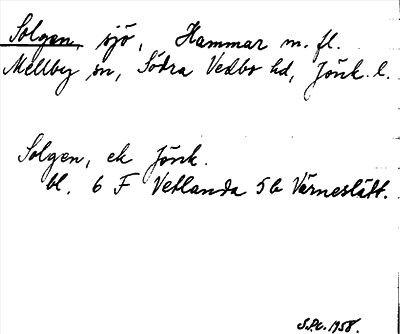 Solgen, sjö, Hammar m. fl.
Mellby sn, Södra Vedbo hd, Jönk. l.
Solgen, ek Jönk.
bl. 6 F Vetlanda 5 b Värneslätt.
1958.